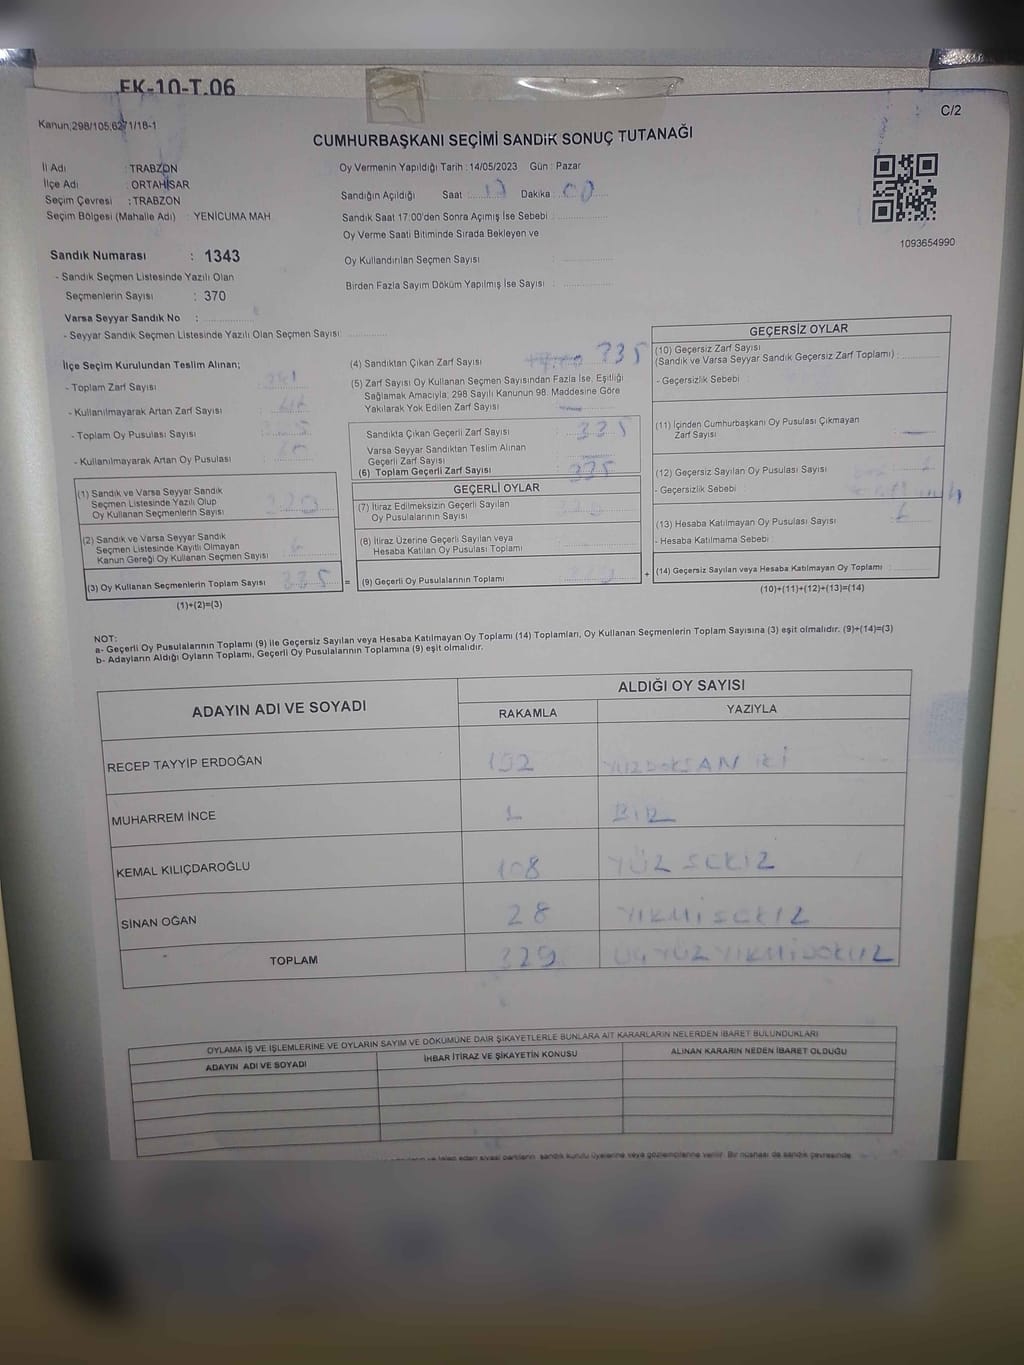 EK-10-T.06
Kanun;298/105;6271/18-1
C/2
CUMHURBAŞKANI SEÇİMİ SANDIK SONUÇ TUTANAĞI
İl Adı : TRABZON
İlçe Adı : ORTAHİSAR
Seçim Çevresi : TRABZON
Seçim Bölgesi (Mahalle Adı) : YENİCUMA MAH
Oy Vermenin Yapıldığı Tarih : 14/05/2023 Gün : Pazar
Sandığın Açıldığı Saat : 17 Dakika : 00
Sandık Saat 17:00'den Sonra Açımış İse Sebebi :
Oy Verme Saati Bitiminde Sırada Bekleyen ve
Oy Kullandırılan Seçmen Sayısı :
Birden Fazla Sayım Döküm Yapılmış İse Sayısı :
1093654990
Sandık Numarası : 1343
- Sandık Seçmen Listesinde Yazılı Olan
Seçmenlerin Sayısı : 370
Varsa Seyyar Sandık No :
- Seyyar Sandık Seçmen Listesinde Yazılı Olan Seçmen Sayısı:
İlçe Seçim Kurulundan Teslim Alınan;
- Toplam Zarf Sayısı :
- Kullanılmayarak Artan Zarf Sayısı :
- Toplam Oy Pusulası Sayısı :
- Kullanılmayarak Artan Oy Pusulası :
(1) Sandık ve Varsa Seyyar Sandık
Seçmen Listesinde Yazılı Olup
Oy Kullanan Seçmenlerin Sayısı :
(2) Sandık ve Varsa Seyyar Sandık
Seçmen Listesinde Kayıtlı Olmayan
Kanun Gereği Oy Kullanan Seçmen Sayısı :
(3) Oy Kullanan Seçmenlerin Toplam Sayısı : 335
(1)+(2)=(3)
(4) Sandıktan Çıkan Zarf Sayısı : 335
(5) Zarf Sayısı Oy Kullanan Seçmen Sayısından Fazla İse, Eşitliği
Sağlamak Amacıyla; 298 Sayılı Kanunun 98. Maddesine Göre
Yakılarak Yok Edilen Zarf Sayısı :
Sandıkta Çıkan Geçerli Zarf Sayısı : 335
Varsa Seyyar Sandıktan Teslim Alınan
Geçerli Zarf Sayısı :
(6) Toplam Geçerli Zarf Sayısı : 335
GEÇERLİ OYLAR
(7) İtiraz Edilmeksizin Geçerli Sayılan
Oy Pusulalarının Sayısı :
(8) İtiraz Üzerine Geçerli Sayılan veya
Hesaba Katılan Oy Pusulası Toplamı :
= (9) Geçerli Oy Pusulalarının Toplamı :
GEÇERSİZ OYLAR
(10) Geçersiz Zarf Sayısı
(Sandık ve Varsa Seyyar Sandık Geçersiz Zarf Toplamı) :
- Geçersizlik Sebebi :
(11) İçinden Cumhurbaşkanı Oy Pusulası Çıkmayan
Zarf Sayısı :
(12) Geçersiz Sayılan Oy Pusulası Sayısı :
- Geçersizlik Sebebi :
(13) Hesaba Katılmayan Oy Pusulası Sayısı :
- Hesaba Katılmama Sebebi :
+ (14) Geçersiz Sayılan veya Hesaba Katılmayan Oy Toplamı :
(10)+(11)+(12)+(13)=(14)
NOT:
a- Geçerli Oy Pusulalarının Toplamı (9) ile Geçersiz Sayılan veya Hesaba Katılmayan Oy Toplamı (14) Toplamları, Oy Kullanan Seçmenlerin Toplam Sayısına (3) eşit olmalıdır. (9)+(14)=(3)
b- Adayların Aldığı Oyların Toplamı, Geçerli Oy Pusulalarının Toplamına (9) eşit olmalıdır.
ADAYIN ADI VE SOYADI ALDIĞI OY SAYISI
RAKAMLA YAZIYLA
RECEP TAYYİP ERDOĞAN 192 YÜZDOKSAN İKİ
MUHARREM İNCE 1 BİR
KEMAL KILIÇDAROĞLU 108 YÜZ SEKİZ
SİNAN OĞAN 28 YİRMİSEKİZ
TOPLAM 329 ÜÇYÜZYİRMİDOKUZ
OYLAMA İŞ VE İŞLEMLERİNE VE OYLARIN SAYIM VE DÖKÜMÜNE DAİR ŞİKAYETLERLE BUNLARA AİT KARARLARIN NELERDEN İBARET BULUNDUKLARI
ADAYIN ADI VE SOYADI İHBAR İTİRAZ VE ŞİKAYETİN KONUSU ALINAN KARARIN NEDEN İBARET OLDUĞU
siyasi partilerin sandık kurulu üyelerine veya gözlemcilerine verilir. Bir nüshası da sandık çevresinde